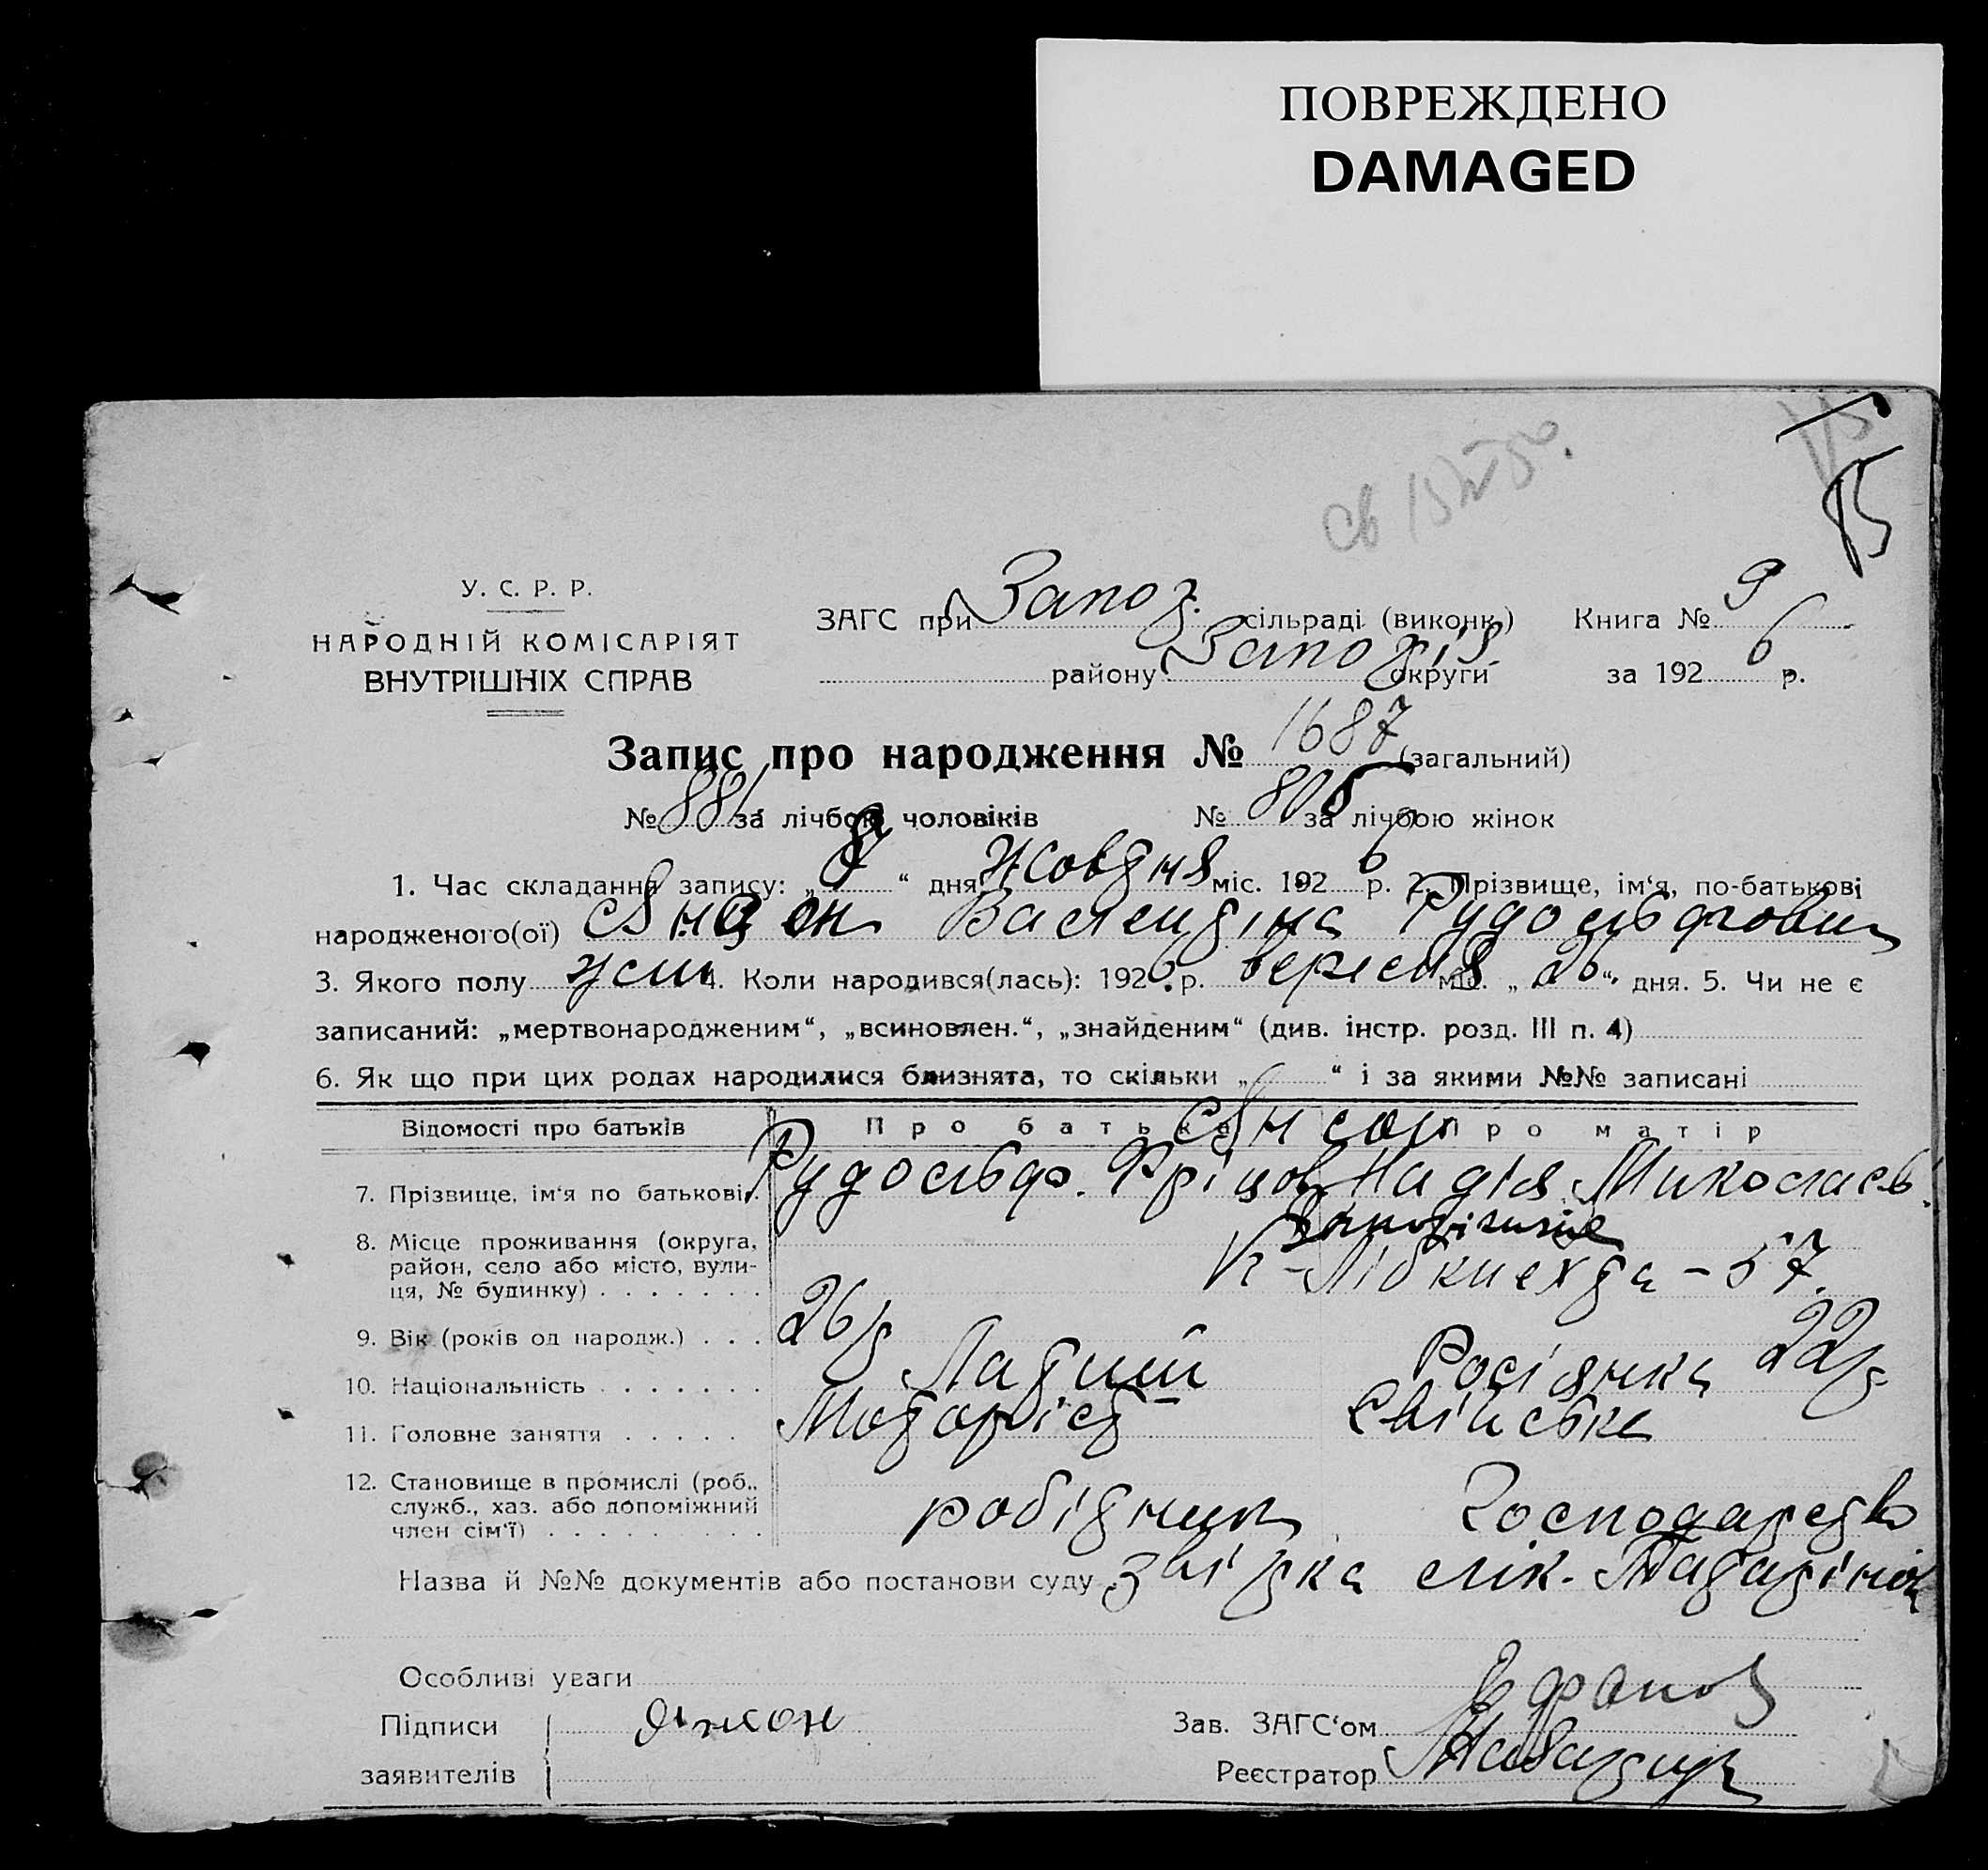 ПОВРЕЖДЕНО
DAMAGED
15
У. С. Р. Р.
НАРОДНІЙ КОМІСАРІЯТ
ВНУТРІШНІХ СПРАВ
ЗАГС при Запоз. сільраді (виконк.) Книга № 9
району Запоріз. округи за 1926 р.
Запис про народження № 1687 (загальний)
№ 881 за лічбою чоловіків № 806 за лічбою жінок
1. Час складання запису: „8“ дня жовтня міс. 1926 р. 2. Прізвище, ім‘я, по-батькові
народженого(ої) Янсон Валентіна Рудольфовна
3. Якого полу жін 4. Коли народився(лась): 1926 р. вересня міс. „26“ дня. 5. Чи не є
записаний: „мертвонародженим“, „всиновлен.“, „знайденим“ (див. інстр. розд. III п. 4)
6. Як що при цих родах народилися близнята, то скільки „ “ і за якими №№ записані
Відомості про батьків Про батька Про матір
Янсон
7. Прізвище, ім‘я по батькові Рудольф. Фріцов. Надія Миколаєв.
8. Місце проживання (округа, район, село або місто, вулиця, № будинку) Запоріжжє
К-Лібкнехта – 57.
9. Вік (років од народж.) 26 р 22 р
10. Національність Латиш Росіянка
11. Головне заняття Моторіст Свійське
12. Становище в промислі (роб., служб., хаз. або допоміжний член сім‘ї) робітник Господарство
Назва й №№ документів або постанови суду Звірка лік.
Особливі уваги
Підписи Янсон Зав. ЗАГС‘ом
заявителів Реєстратор